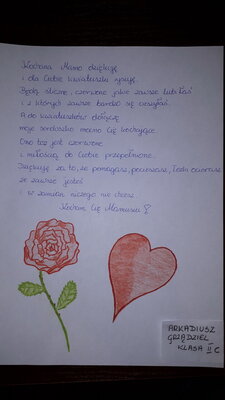 Kochana Mamo dziękuję
i dla Ciebie kwiatuszki rysuję.
Będą śliczne, czerwone jakie zawsze lubiłaś
i z których zawsze bardzo się cieszyłaś.
A do kwiatuszków dołączę
moje serduszko mocno Cię kochające.
Ono też jest czerwone
i miłością do Ciebie przepełnione.
Dziękuję za to, że pomagasz, pocieszasz,
że zawsze jesteś
i w zamian niczego nie chcesz.
Kocham Cię Mamusiu
ARKADIUSZ
GRZĄDZIEL
KLASA II C